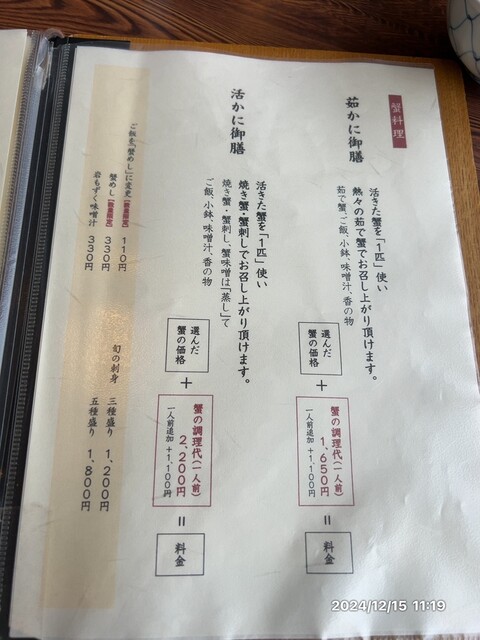 蟹料理
茹かに御膳
活きた蟹を「1匹」使い
熱々の茹で蟹でお召し上がり頂けます。
茹で蟹、ご飯、小鉢、味噌汁、香の物
選んだ
蟹の価格
+
蟹の調理代(一人前)
1,650円
一人前追加 +1,100円
=
料金
活かに御膳
活きた蟹を「1匹」使い
焼き蟹・蟹刺しでお召し上がり頂けます。
焼き蟹・蟹刺し、蟹味噌は「蒸し」て
ご飯、小鉢、味噌汁、香の物
選んだ
蟹の価格
+
蟹の調理代(一人前)
2,200円
一人前追加 +1,100円
=
料金
ご飯を「蟹めし」に変更【数量限定】 110円
蟹めし【数量限定】 330円
岩もずく味噌汁 330円
旬の刺身
三種盛り 1,200円
五種盛り 1,800円
2024/12/15 11:19